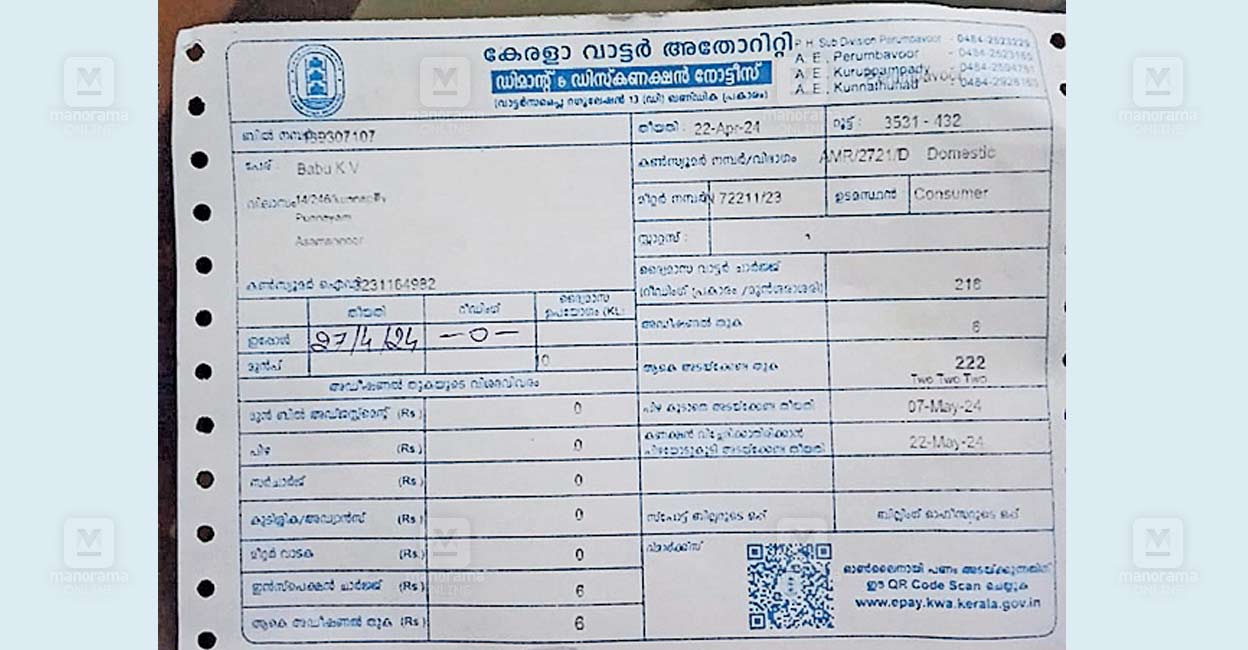 കേരളാ വാട്ടർ അതോറിറ്റി
ഡിമാന്റ് & ഡിസ്കണക്ഷൻ നോട്ടീസ്
(വാട്ടർസപ്ലൈ റഗുലേഷൻ 13 (ഡി) ഖണ്ഡിക പ്രകാരം)
P.H. Sub Division Perumbavoor - 0484-2523229
A.E. Perumbavoor
A.E. Kuruppampady
A.E. Kunnathunad
ബിൽ നമ്പർ 139307107
പേര് : Babu K V
വിലാസം
Asamannoor
കൺസ്യൂമർ ഐഡി 3231164982
തീയതി : 22-Apr-24 റൂട്ട് : 3531 - 432
കൺസ്യൂമർ നമ്പർ/വിഭാഗം AMR/2721/D Domestic
മീറ്റർ നമ്പർ 72211/23 ഉടമസ്ഥൻ Consumer
സ്റ്റാറ്റസ് :
ദ്വൈമാസ വാട്ടർ ചാർജ്ജ്
(റീഡിംഗ് പ്രകാരം /മുൻശരാശരി) 216
അഡീഷണൽ തുക 6
ആകെ അടയ്ക്കേണ്ട തുക 222
Two Two Two
പിഴ കൂടാതെ അടയ്ക്കേണ്ട തീയതി 07-May-24
കണക്ഷൻ വിച്ഛേദിക്കാതിരിക്കാൻ
പിഴയോടുകൂടി അടയ്ക്കേണ്ട തീയതി 22-May-24
സ്പോട്ട് ബില്ലറുടെ ഒപ്പ് ബില്ലിംഗ് ഓഫീസറുടെ ഒപ്പ്
റിമാർക്ക്സ്
തീയതി റീഡിംഗ് ദ്വൈമാസ
ഉപയോഗം (KL)
ഇപ്പോൾ 27/4/24 -0-
മുൻപ് 0
അഡീഷണൽ തുകയുടെ വിശദവിവരം
മുൻ ബിൽ അഡ്ജസ്റ്റ്മെന്റ് (Rs.) 0
പിഴ (Rs.) 0
സർചാർജ് (Rs.) 0
കുടിശ്ശിക/അഡ്വാൻസ് (Rs.) 0
മീറ്റർ വാടക (Rs.) 0
ഇൻസ്പെക്ഷൻ ചാർജ്ജ് (Rs.) 6
ആകെ അഡീഷണൽ തുക (Rs.) 6
ഓൺലൈനായി പണം അടയ്ക്കുന്നതിന്
ഈ QR Code Scan ചെയ്യുക
www.epay.kwa.kerala.gov.in
manorama
ONLINE
manorama
ONLINE
manorama
ONLINE
manorama
ONLINE